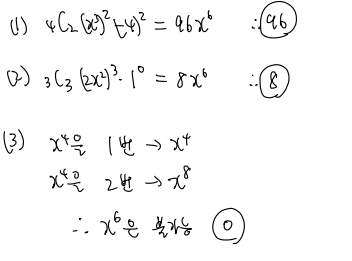 (1) ₄C₂ (x³)²(-4)² = 96x⁶ ∴ 96
(2) ₃C₃ (2x²)³·1⁰ = 8x⁶ ∴ 8
(3) x⁴을 1번 → x⁴
x⁴을 2번 → x⁸
∴ x⁶은 0